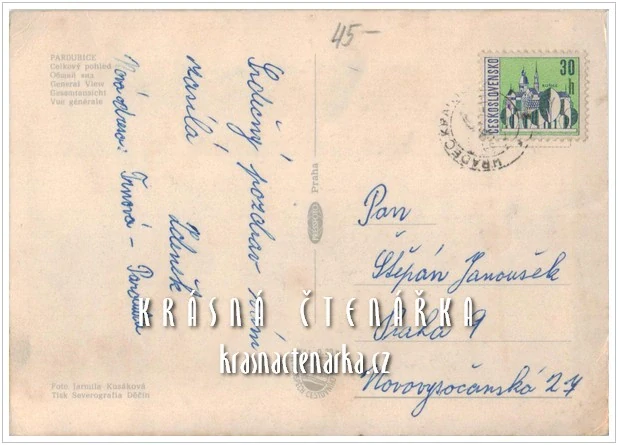 45-
PARDUBICE
Celkový pohled
Общий вид
General View
Gesamtansicht
Vue générale
ČESKOSLOVENSKO
30 h
HRADEC KRÁ
Srdečný pozdrav Vám
zasílá
Zdeněk
Nová adresa: Trnová - Pardubice
Praha
Pan
Štěpán Janoušek
Praha 9
Novovysočanská 27
KRÁSNÁ ČTENÁŘKA
krasnactenarka.cz
Foto Jarmila Kusáková
Tisk Severografia Děčín